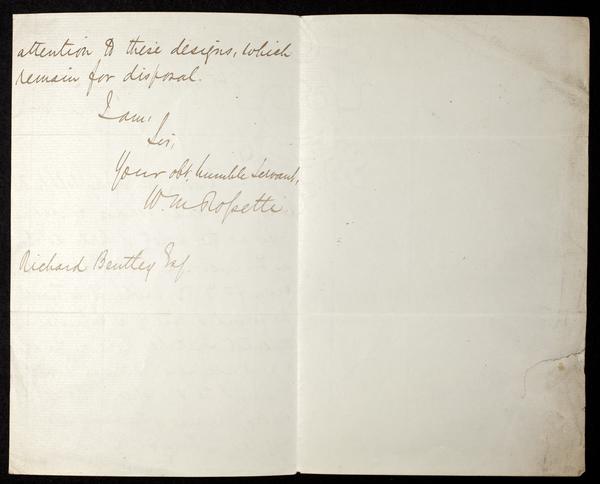 attention to these designs, which
remain for disposal.
I am,
Sir,
Your obt. humble Servant,
W. M Rossetti
Richard Bentley Esq.